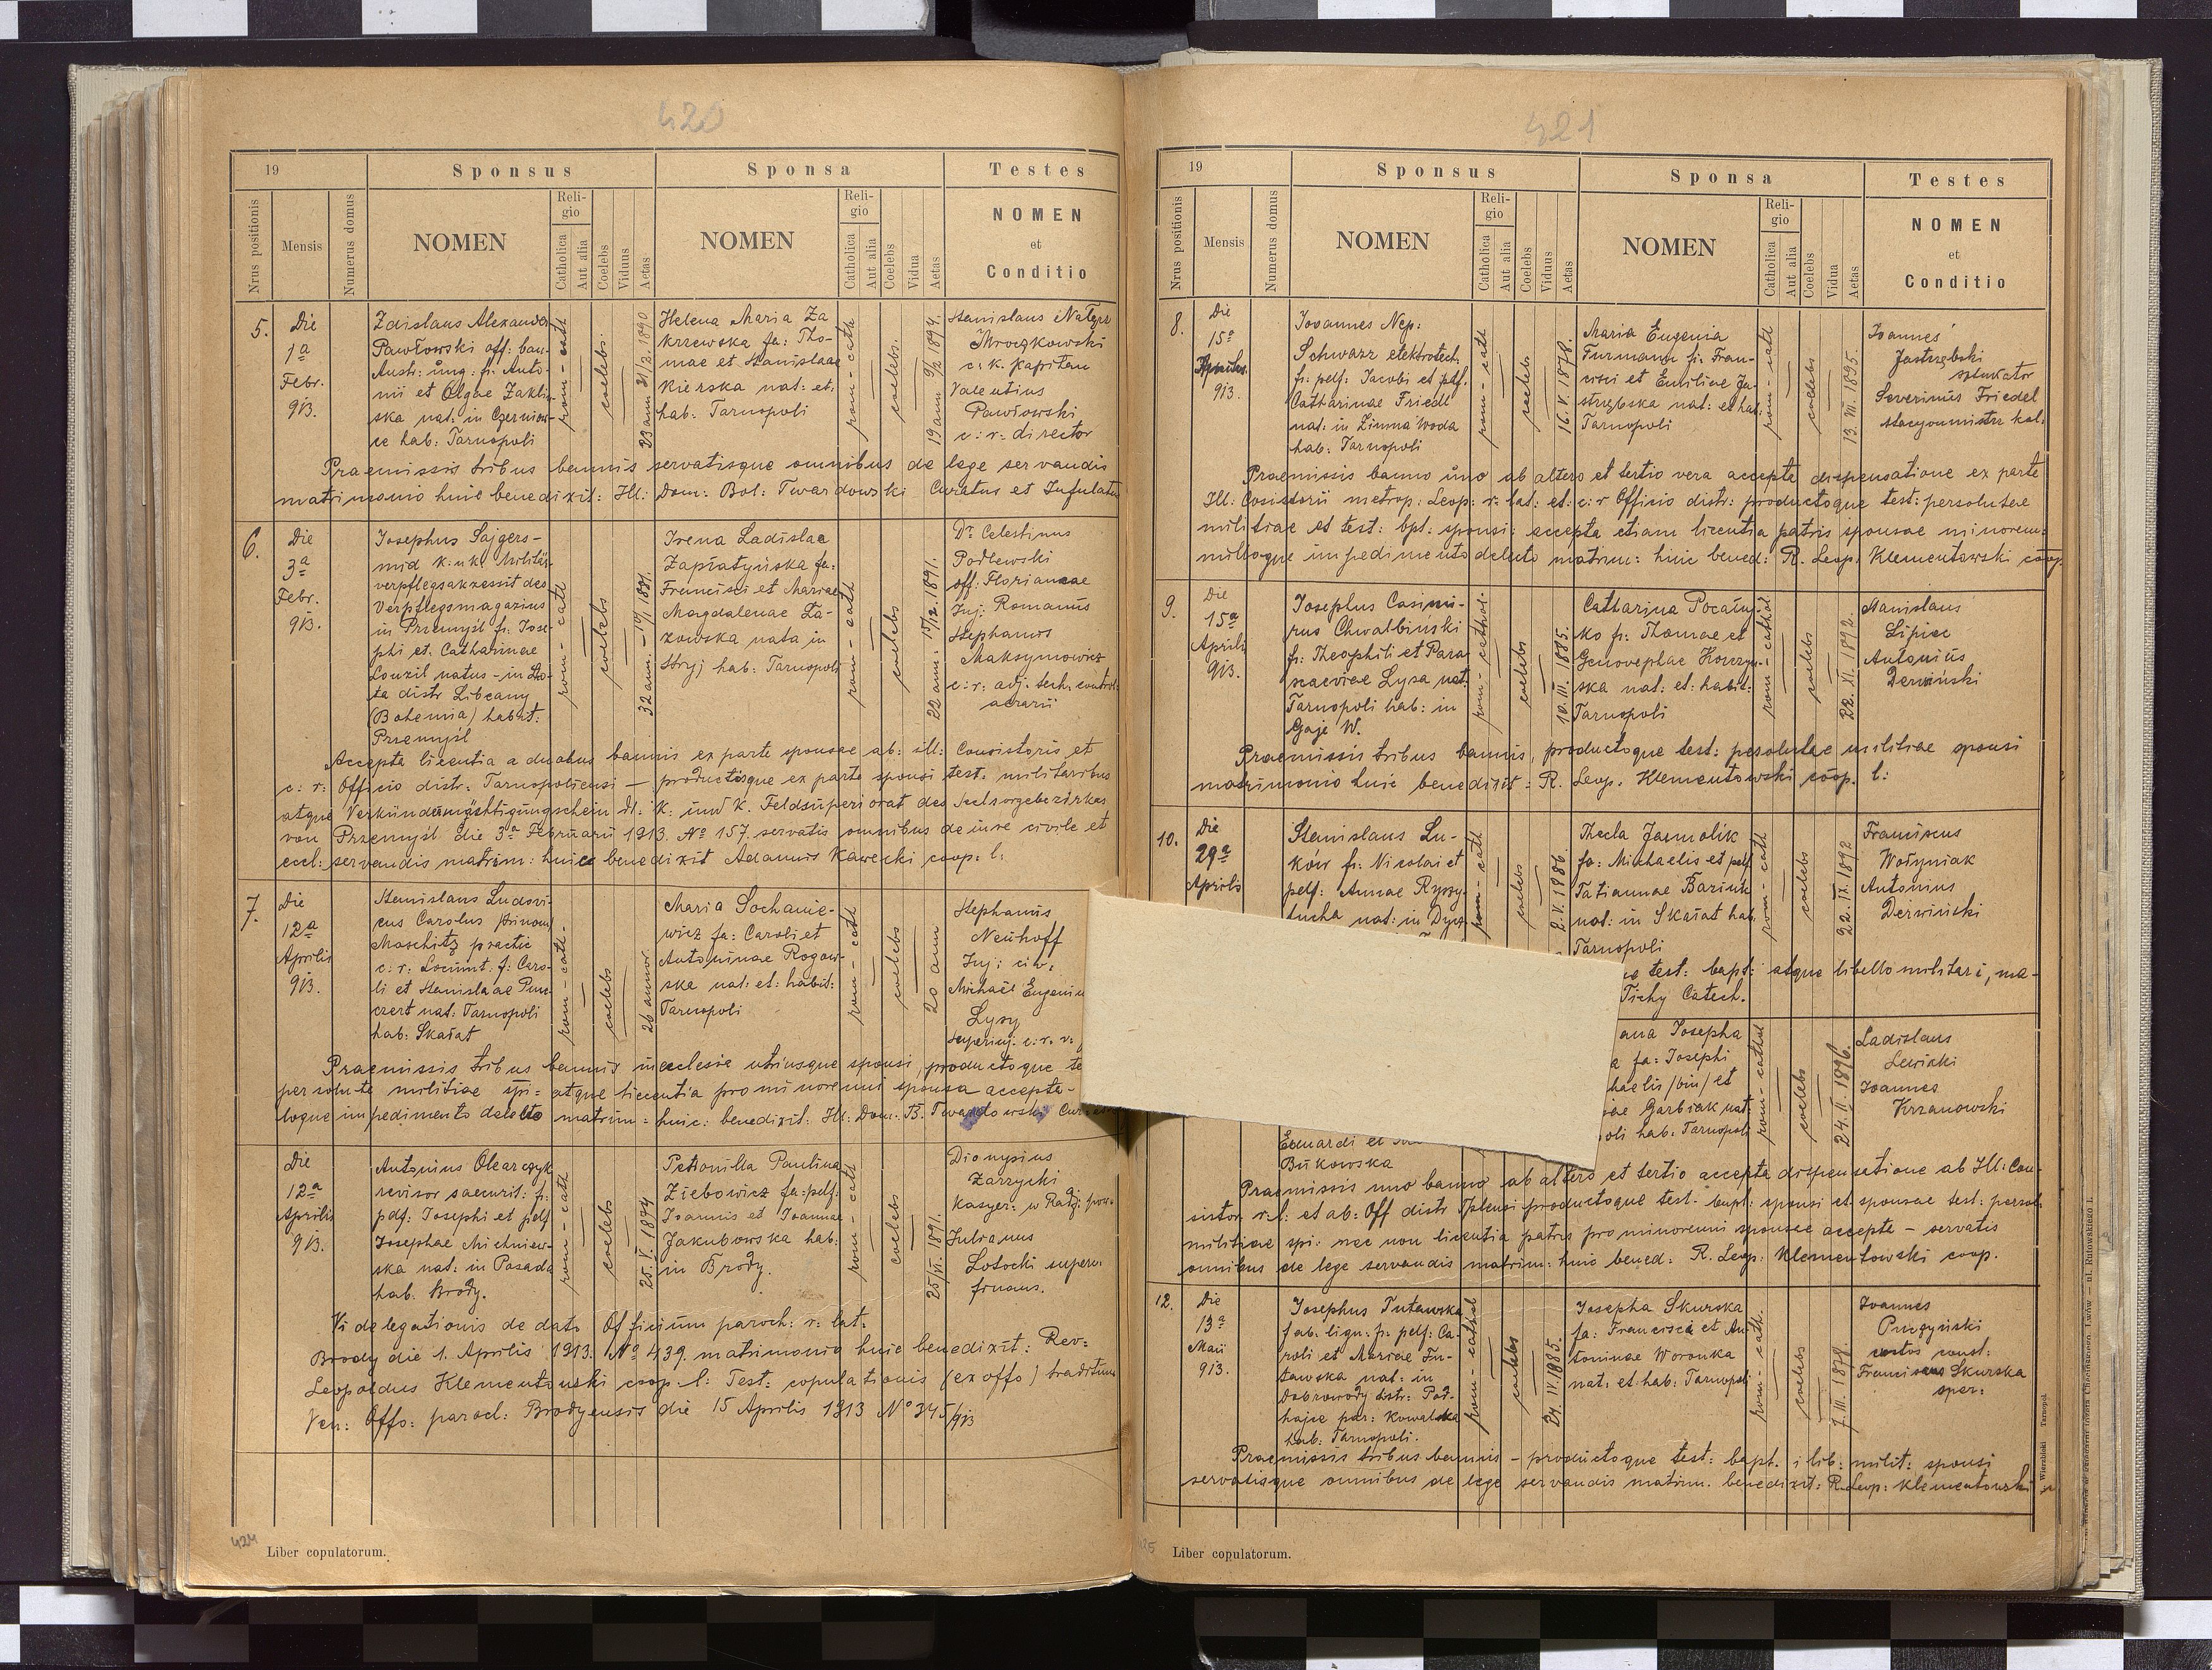 420
19
Sponsus
Sponsa
Testes
Nrus positionis
Mensis
Numerus domus
NOMEN
Religio
Catholica
Aut alia
Coelebs
Viduus
Aetas
NOMEN
Religio
Catholica
Aut alia
Coelebs
Vidua
Aetas
NOMEN
et
Conditio
5.
Die
1a
Febr.
913.
Zdislaus Alexander
Pawłowski off: ban.
Austr: ung: fi: Anto-
nii et Olgae Zakliń-
ska nat: in Czerniow-
ce hab: Tarnopoli
rom-cath
coelebs
23 ann 31/3. 1890
Helena Maria Za
krzewska fa: Tho-
mae et Stanislaae
Kierska nat: et:
hab: Tarnopoli
rom-cath
coelebs.
19 ann 9/2 1894.
Stanislaus
Mroczkowski
c. k. Kapitan
Valentius
Pawłowski
c: r: director
Praemissis tribus bannis servatisque omnibus de lege servandis
matrimonio huic benedixit: Ill: Dom: Bol: Twardowski Curatus et Infulatus
6.
Die
3a
Febr.
913.
Josephus Sajgers-
mid k. u k. Militär-
verpflegsakzessit des
Verpflegsmagazins
in Przemyśl fi: Jose-
phi et Catharinae
Louzil natus - in
ta distr Libcany
(Bohemia) habit:
Przemyśl
rom-cath
coelebs
32 ann. - 1881.
Irena Ladislaa
Zapłatyńska fa:
Francisci et Mariae
Magdalenae Ła-
zowska nata in
Stryj hab: Tarnopoli
rom-cath
coelebs
22 ann: 15/12. 1891.
Dr Celestinus
Podlewski
off: Florianeae
Inj: Romanus
Stephanus
Maksymowicz
c: r: adj. tech. controll:
aerarii
Accepta licentia a duobus bannis ex parte sponsae ab: ill: Consistoris et
c: r: Officio distr: Tarnopoliensi — productisque ex parte sponsi test: militaribus
atque Verkündermächtigungschein d: K. und K. Feldsuperiorat des Seelsorgebezirkes
von Przemyśl die 3a Februarii 1913. No 157. servatis omnibus de iure civile et
eccl: servandis matrim: huic benedixit Adamus Kawecki coop. l:
7.
Die
12a
Aprilis
913.
Stanislaus Ludovi-
cus Carolus /trinom/
Moschitz practic
c: r: Locumt. f: Caro-
li et Stanislaae Pun-
czert nat: Tarnopoli
hab: Skałat
rom-cath-
coelebs
26 annor.
Maria Sochanie-
wicz fa: Caroli et
Antoninae Rogow-
ska nat: et: habit:
Tarnopoli
rom-cath
coelebs
20 ann
Stephanus
Neuhoff
Inj: civ:
Michaël Eugenius
Lysy
superinj. c: r.
Praemissis tribus bannis in ecclesia utriusque sponsi, productoque te
persolute militiae spi= atque licentia pro minorenni sponsa accepta-
loque impedimento delecto matrim: huic: benedixit: Ill: Dom: B. Twardowski
Die
12a
Aprilis
913.
Antonius Olearczyk
revisor saecurit: fi:
pdf: Josephi et pdf
Josephae Michniew-
ska nat: in Posada
hab. Brody.
rom-cath
coelebs
25. V. 1874
Petronilla Paulina
Ziebowicz fa: pdf:
Joannis et Joannae
Jakubowska hab:
in Brody.
rom-cath
coelebs
25/VI. 1891.
Dionysius
Zarzycki
Kasyer: w
Julianus
Łotocki superv:
finans.
Vi delegationis de dato Officium paroch: r: lat:
Brody die 1. Aprilis 1913. No 439. matrimonio huic benedixit: Rev=
Leopoldus Klementowski coop. l: Test: copulationis (ex offo) traditum
Ven: Offo: paroch: Brodyensis die 15 Aprilis 1913 No 345/913
424
Liber copulatorum.
421
19
Sponsus
Sponsa
Testes
Nrus positionis
Mensis
Numerus domus
NOMEN
Religio
Catholica
Aut alia
Coelebs
Viduus
Aetas
NOMEN
Religio
Catholica
Aut alia
Coelebs
Vidua
Aetas
NOMEN
et
Conditio
8.
Die
15a
Aprilis
913.
Joannes Nep:
Schwarz elektrotech.
fi: pdf: Jacobi et pdf.
Catharinae Friedl
nat: in Zimna Woda
hab: Tarnopoli
rom-cath
coelebs
16. V. 1878.
Maria Eugenia
Furmann fi: Fran-
cisci et Emiliae Ja-
strzębska nat: et hab:
Tarnopoli
rom-cath
coelebs
13. VII. 1895.
Joannes
Jastrzębski
spluvator
Severinus Friedel
Stacyonmistrz kol.
Praemissis banno uno ab altero et tertio vera accepta dispensatione ex parte
Ill: Cosistorii metrop: Leop: r: lat: et: c: r Officio distr: productoque test: persolutae
militiae et test: bpt: sponsi: accepta etiam licentia patris sponsae minoren:
nulloque impedimento delecto matrim: huic bened: R. Leop. Klementowski coop.
9.
Die
15a
Aprilis
913.
Josephus Casimi-
rus Chwalbiński
fi: Theophili et Para
scaeviae Lysa nat:
Tarnopoli hab: in
Gaje W.
rom-cathol.
coelebs
10. III. 1885.
Catharina
ko fi: Thomae et
Genovephae
ska nat: et: habit:
Tarnopoli
rom-cathol.
coelebs
22. XI. 1892.
Stanislaus
Lipiec
Antonius
Derwiński
Praemissis tribus bannis, productoque test: pesolutae militiae sponsi
matrimonio huic benedixit: R. Leop. Klementowski coop. l:
10.
Die
29a
Aprilis
Stanislaus Lu-
ków fi: Nicolai et
pdf: Annae Ryzy-
tucha nat: in
rom-cath
coelebs
2. V. 1886.
Thecla Jarmolik
fa: Michaelis et pdf
Tatiannae Bariuk
nat: in Skałat hab.
Tarnopoli
rom-cath
coelebs
22. IX. 1892
Franciscus
Wołyniak
Antonius
Derwiński
test: bapt: atque libello militari, ma-
Tichy Catech.
Eduardi et
Bukowska
ana Josepha
a fa: Josephi
haelis /bin/ et
Garbiak nat.
oli hab: Tarnopoli
rom-cathol
coelebs
24. II. 1896.
Ladislaus
Lewicki
Joannes
Krzanowski
Praemissis uno banno ab altero et tertio accepta dispensatione ab Ill: Con-
sistor r. l: et ab: Off distr Tplensi productoque test- bapt: sponsi et sponsae test: persol.
militiae spi: nec non licentia patris pro minorenni sponsae accepta - servatis
omnibus de lege servandis matrim: huic bened: R. Leop: Klementowski coop.
12.
Die
13a
Maii
913.
Josephus Tutawska
fab. lign: fi: pdf: Ca-
roli et Mariae Tu-
tawska nat: in
Dobrowody distr: Pod-
hajce par: Kowalska
hab: Tarnopoli.
rom-cathol
coelebs
24. IV. 1885.
Josepha Skurska
fa: Francisci et An-
toninae Woronka
nat: et hab: Tarnopoli
rom-cath.
coelebs
7. III. 1878.
Joannes
custos const:
Franciscus Skurska
oper:
Praemissis tribus bannis - productoque test: bapt. i lib: milit: sponsi
servatisque omnibus de lege servandis matrim. benedixit: R. Leop: Klementowski
425
Liber copulatorum.